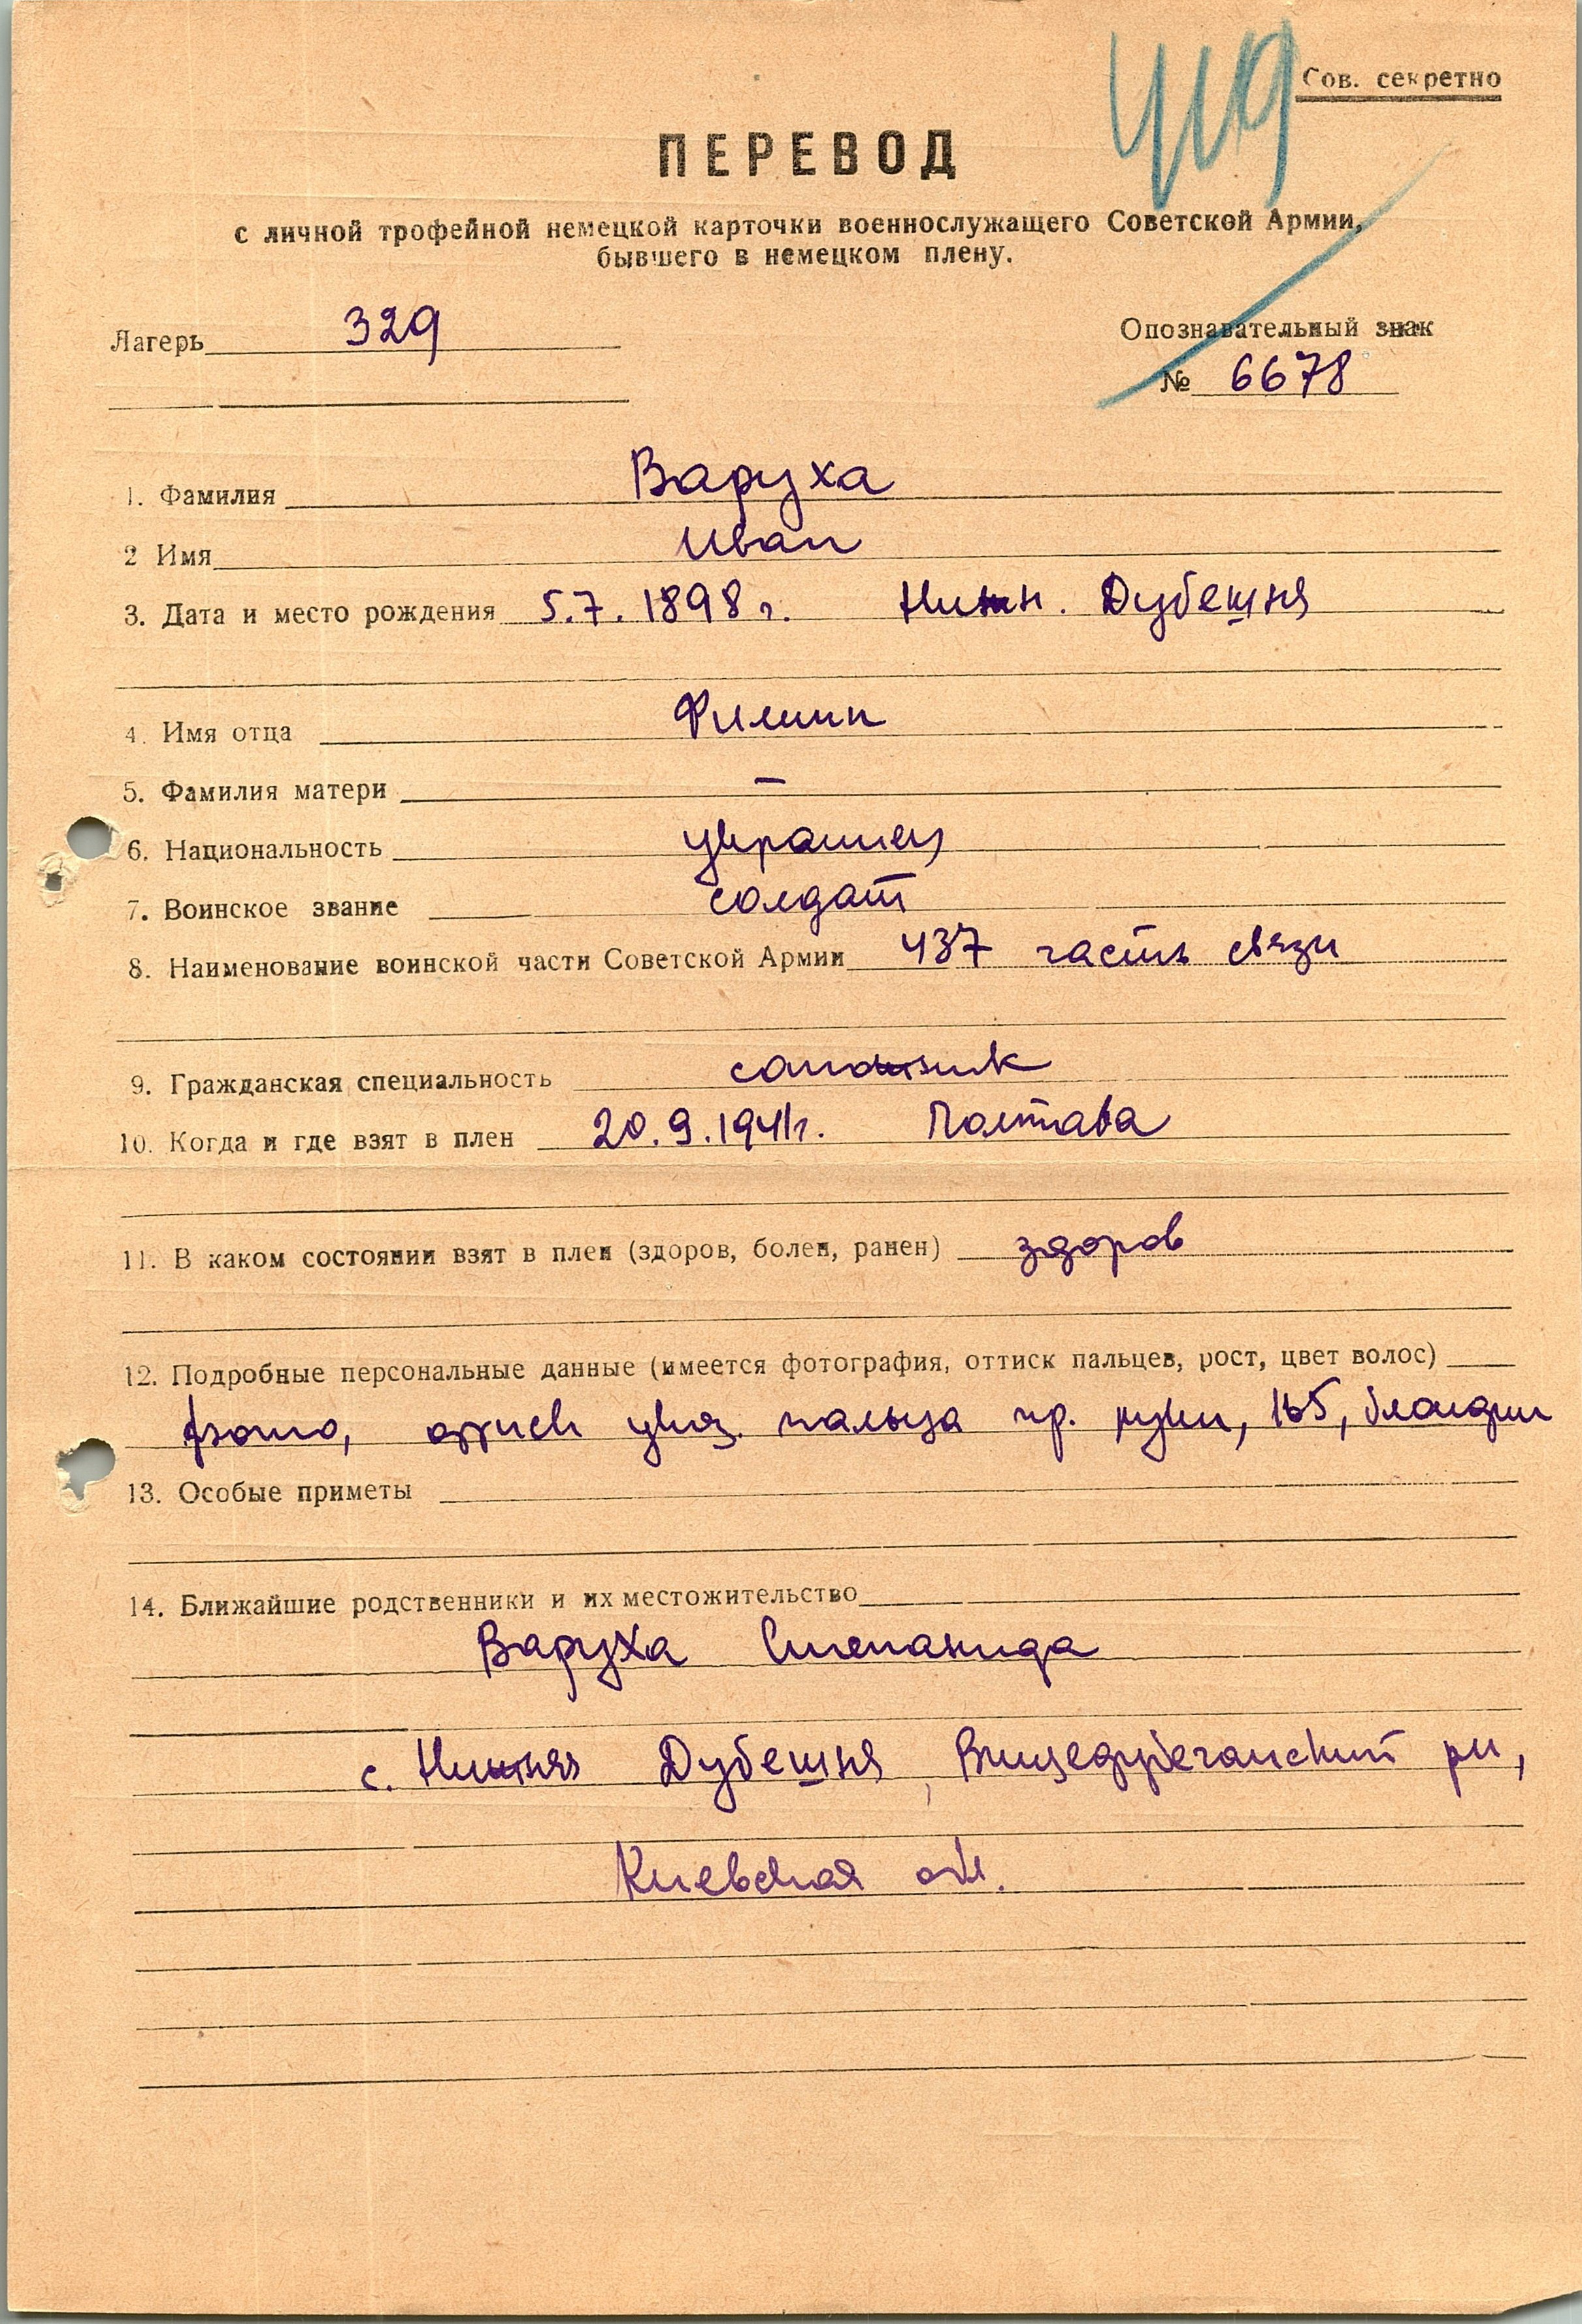 419
Сов. секретно
ПЕРЕВОД
с личной трофейной немецкой карточки военнослужащего Советской Армии,
бывшего в немецком плену.
Лагерь 329
Опознавательный знак
№ 6678
1. Фамилия Варуха
2 Имя Иван
3. Дата и место рождения 5.7.1898 г. Нижн. Дубешня
4. Имя отца Филипп
5. Фамилия матери –
6. Национальность украинец
7. Воинское звание солдат
8. Наименование воинской части Советской Армии 437 часть связи
9. Гражданская специальность сапожник
10. Когда и где взят в плен 20.9.1941г. Полтава
11. В каком состоянии взят в плен (здоров, болен, ранен) здоров
12. Подробные персональные данные (имеется фотография, оттиск пальцев, рост, цвет волос)
фото, оттиск указ. пальца пр. руки, 165, блондин
13. Особые приметы
14. Ближайшие родственники и их местожительство
Варуха Степанида
с. Нижняя Дубешня, рн,
Киевская обл.